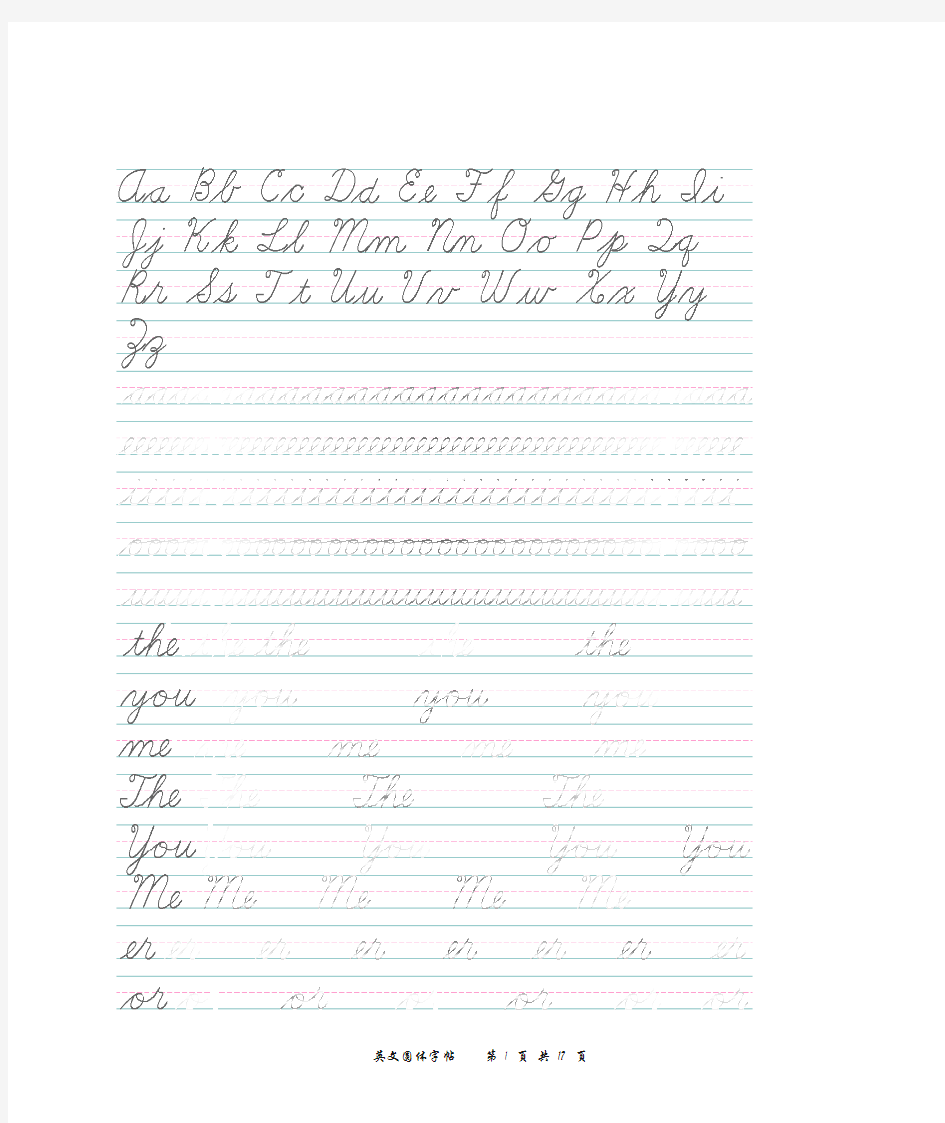 Aa Bb Cc Dd Ee Ff Gg Hh Ii
Jj Kk Ll Mm Nn Oo Pp Qq
Rr Ss Tt Uu Vv Ww Xx Yy
Zz
the the the the the
you you you you
me me me me me
The The The The
You You You You You
Me Me Me Me Me
er er er er er er er er
or or or or or or or
英文圆体字帖 第 1 页 共 17 页